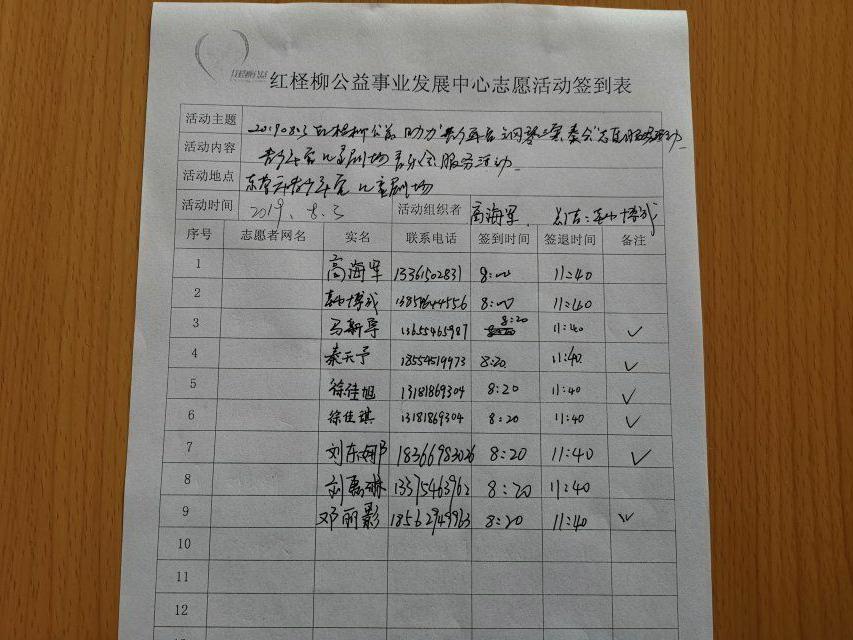 红柽柳公益事业发展中心志愿活动签到表
活动主题 20190803红柽柳公益助力"青少年宫之钢琴 志愿服务活动
活动内容 青少年宫儿童剧场音乐会服务活动
活动地点 东营市青少年宫儿童剧场
活动时间 2019.8.3 活动组织者 高海军
序号 志愿者网名 实名 联系电话 签到时间 签退时间 备注
1 高海军 13361502831 8:00 11:40
2 韩博成 8:00 11:40
3 马新导 13655465987 8:20 11:40 ✓
4 秦天予 18554519973 8:20 11:40 ✓
5 徐佳旭 13181869304 8:20 11:40 ✓
6 徐佳琪 13181869304 8:20 11:40 ✓
7 刘东娜 18366983026 8:20 11:40 ✓
8 刘磊琳 13375463962 8:20 11:40
9 邓丽影 18562949963 8:20 11:40 ✓
10
11
12